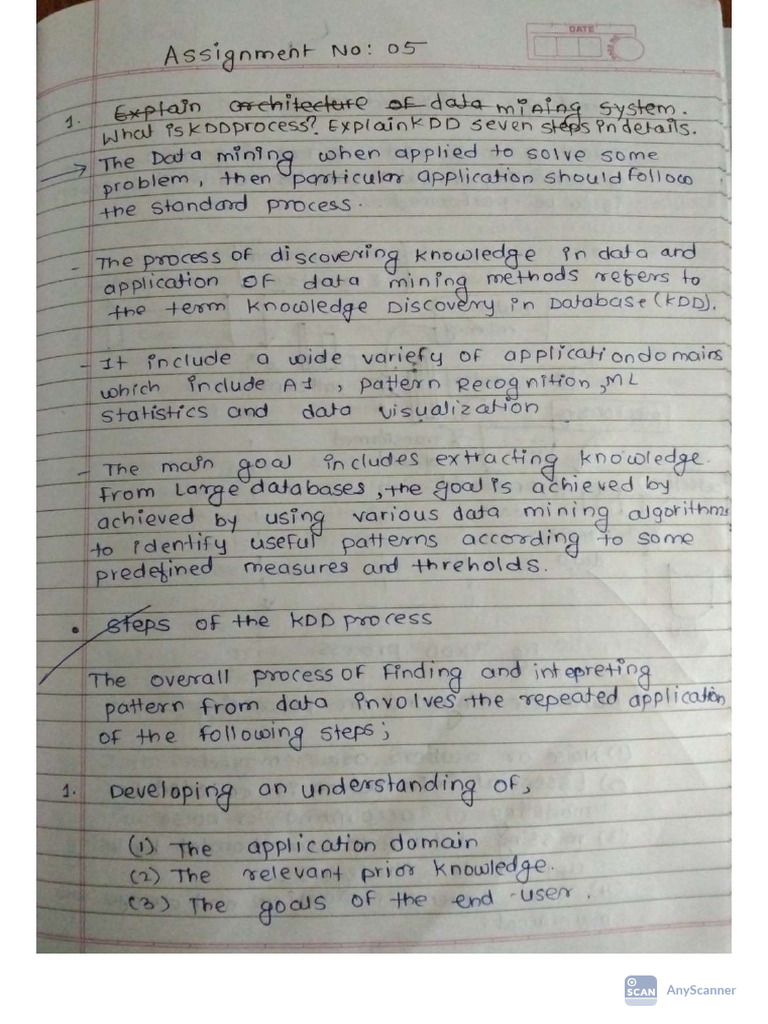 DATE
Assignment No: 05
1. Explain architecture of data mining system.
What is KDD process? Explain KDD seven steps in details.
→ The Data mining when applied to solve some
problem, then particular application should follow
the standard process.
- The process of discovering knowledge in data and
application of data mining methods refers to
the term knowledge Discovery in Database (KDD).
- It include a wide variety of application domains
which include AI, pattern Recognition, ML
statistics and data visualization
- The main goal includes extracting knowledge.
from large databases, the goal is achieved by
achieved by using various data mining algorithms
to identify useful patterns according to some
predefined measures and threholds.
• Steps of the KDD process
The overall process of finding and intepreting
pattern from data involves the repeated application
of the following steps;
1. Developing an understanding of,
(1) The application domain
(2) The relevant prior knowledge.
(3) The goals of the end-user.
SCAN AnyScanner